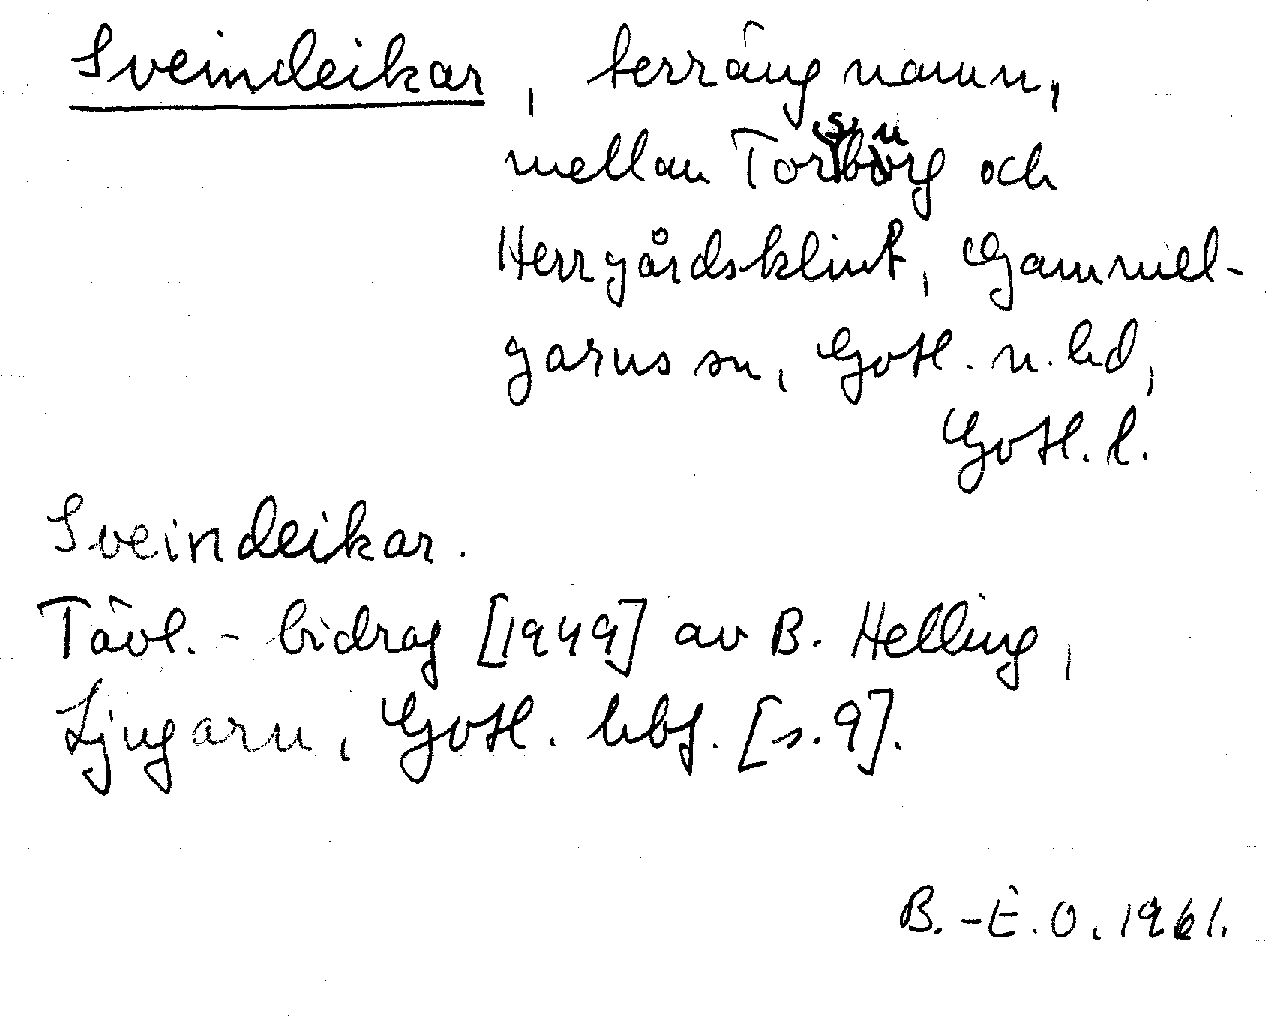 Sveindeikar, terrängnamn,
mellan Torsburg och
Herrgårdsklint, Gammel-
garns sn, Gotl. n. hd,
Gotl. l.
Sveindeikar.
Tävl.-bidrag [1949] av B. Helling,
Ljugarn, Gotl. hbf. [s. 9].
B.-E.O. 1961.